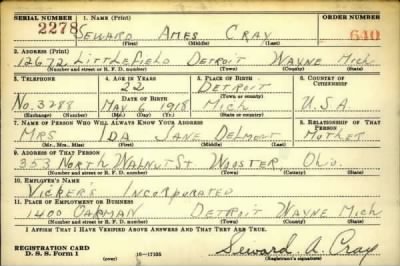 SERIAL NUMBER 1. NAME (Print) ORDER NUMBER
2278 SEWARD AMES CRAY 640
(First) (Middle) (Last)
2. ADDRESS (Print)
12672 LITTLEFIELD DETROIT WAYNE MICH
(Number and street or R. F. D. number) (Town) (County) (State)
3. TELEPHONE 4. AGE IN YEARS 5. PLACE OF BIRTH 6. COUNTRY OF CITIZENSHIP
22 DETROIT
DATE OF BIRTH (Town or county)
No. 3288 MAY 6 1918 MICH U.S.A
(Exchange) (No.) (Mo.) (Day) (Yr.) (State or country)
7. NAME OF PERSON WHO WILL ALWAYS KNOW YOUR ADDRESS 8. RELATIONSHIP OF THAT PERSON
MRS IDA JANE DELMONT MOTHER
(Mr., Mrs., Miss) (First) (Middle) (Last)
9. ADDRESS OF THAT PERSON
353 NORTH WALNUT ST WOOSTER, OHIO.
(Number and street or R. F. D. number) (Town) (County) (State)
10. EMPLOYER'S NAME
VICKER'S INCORPORATED
11. PLACE OF EMPLOYMENT OR BUSINESS
1400 OAKMAN DETROIT WAYNE MICH
(Number and street or R. F. D. number) (Town) (County) (State)
I AFFIRM THAT I HAVE VERIFIED ABOVE ANSWERS AND THAT THEY ARE TRUE.
REGISTRATION CARD
D. S. S. Form 1 16-17105 Seward A. Cray
(Registrant's signature)